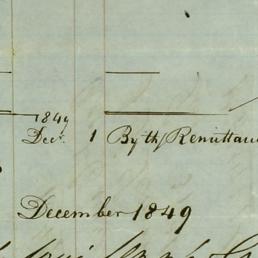 1849
Dec.r 1 By th/ Remittan
December 1849